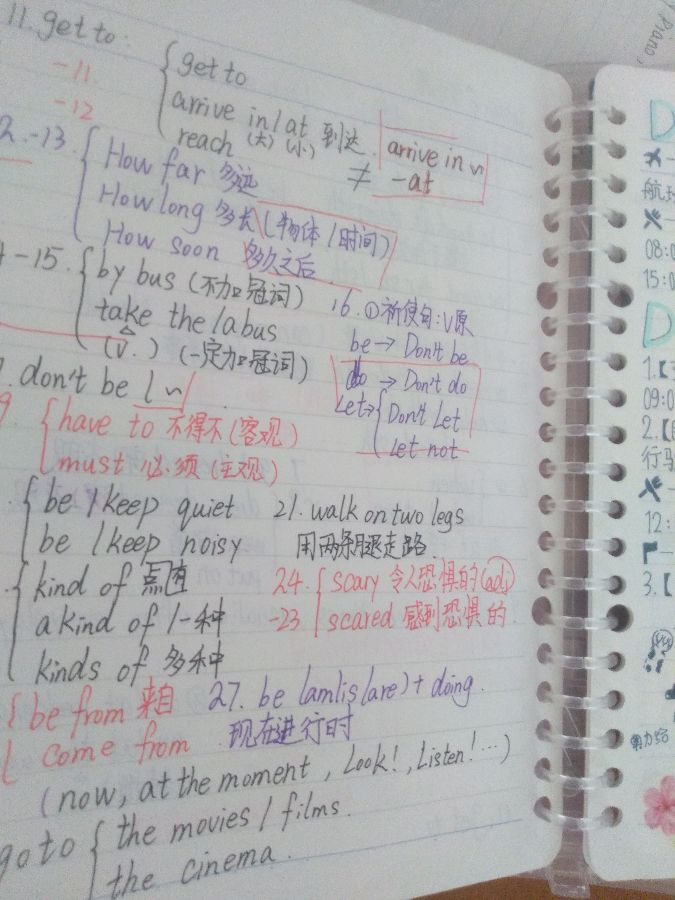 11. get to:
get to
-11
arrive in / at 到达.
-12
reach (大) (小)
≠
arrive in
-at
2.-13.
How far 多远
How long 多长 (物体 / 时间)
How soon 多久之后
4-15.
by bus (不加冠词)
take the / a bus
(v.) (一定加冠词)
16. ① 祈使句: V原
be → Don't be
do → Don't do
Let →
Don't Let
Let not
don't be l
9.
have to 不得不 (客观)
must 必须 (主观)
be / keep quiet
be / keep noisy
21. walk on two legs
用两条腿走路.
kind of
a kind of / 一种
kinds of 多种
24.
-23
scary 令人恐惧的 (adj)
scared 感到恐惧的.
be from 来自
come from
27. be (am/is/are) + doing.
现在进行时
(now, at the moment, Look!, Listen! ...)
go to
the movies / films.
the cinema.
Piano,
D
航班
08:0
15:0
D
1.【
09:0
2.【
行
12:
3.【